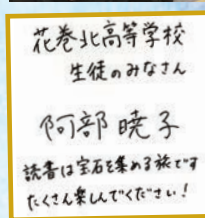 花巻北高等学校
生徒のみなさん
阿部暁子
読書は宝石を集める旅です
たくさん楽しんでください！